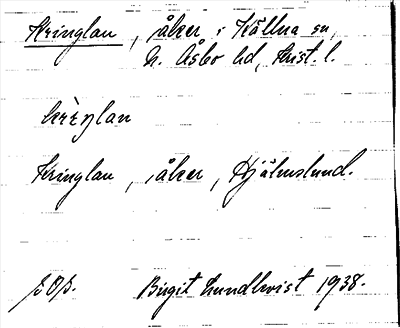 Kringlan, åker i Källna sn,
N. Åsbo hd, Krist. l.
krìŋlan
Kringlan, åker, Hjälmslund.
Birgit Lundkvist 1938.